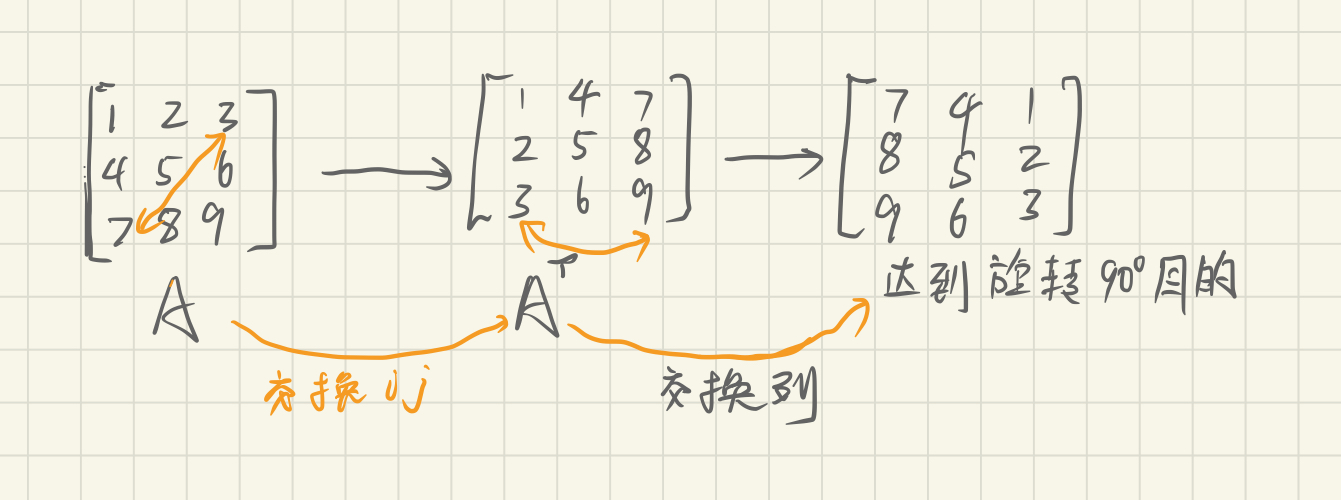 1 2 3
4 5 6
7 8 9
1 4 7
2 5 8
3 6 9
7 4 1
8 5 2
9 6 3
达到旋转90°目的
A
Aᵀ
交换ij
交换列